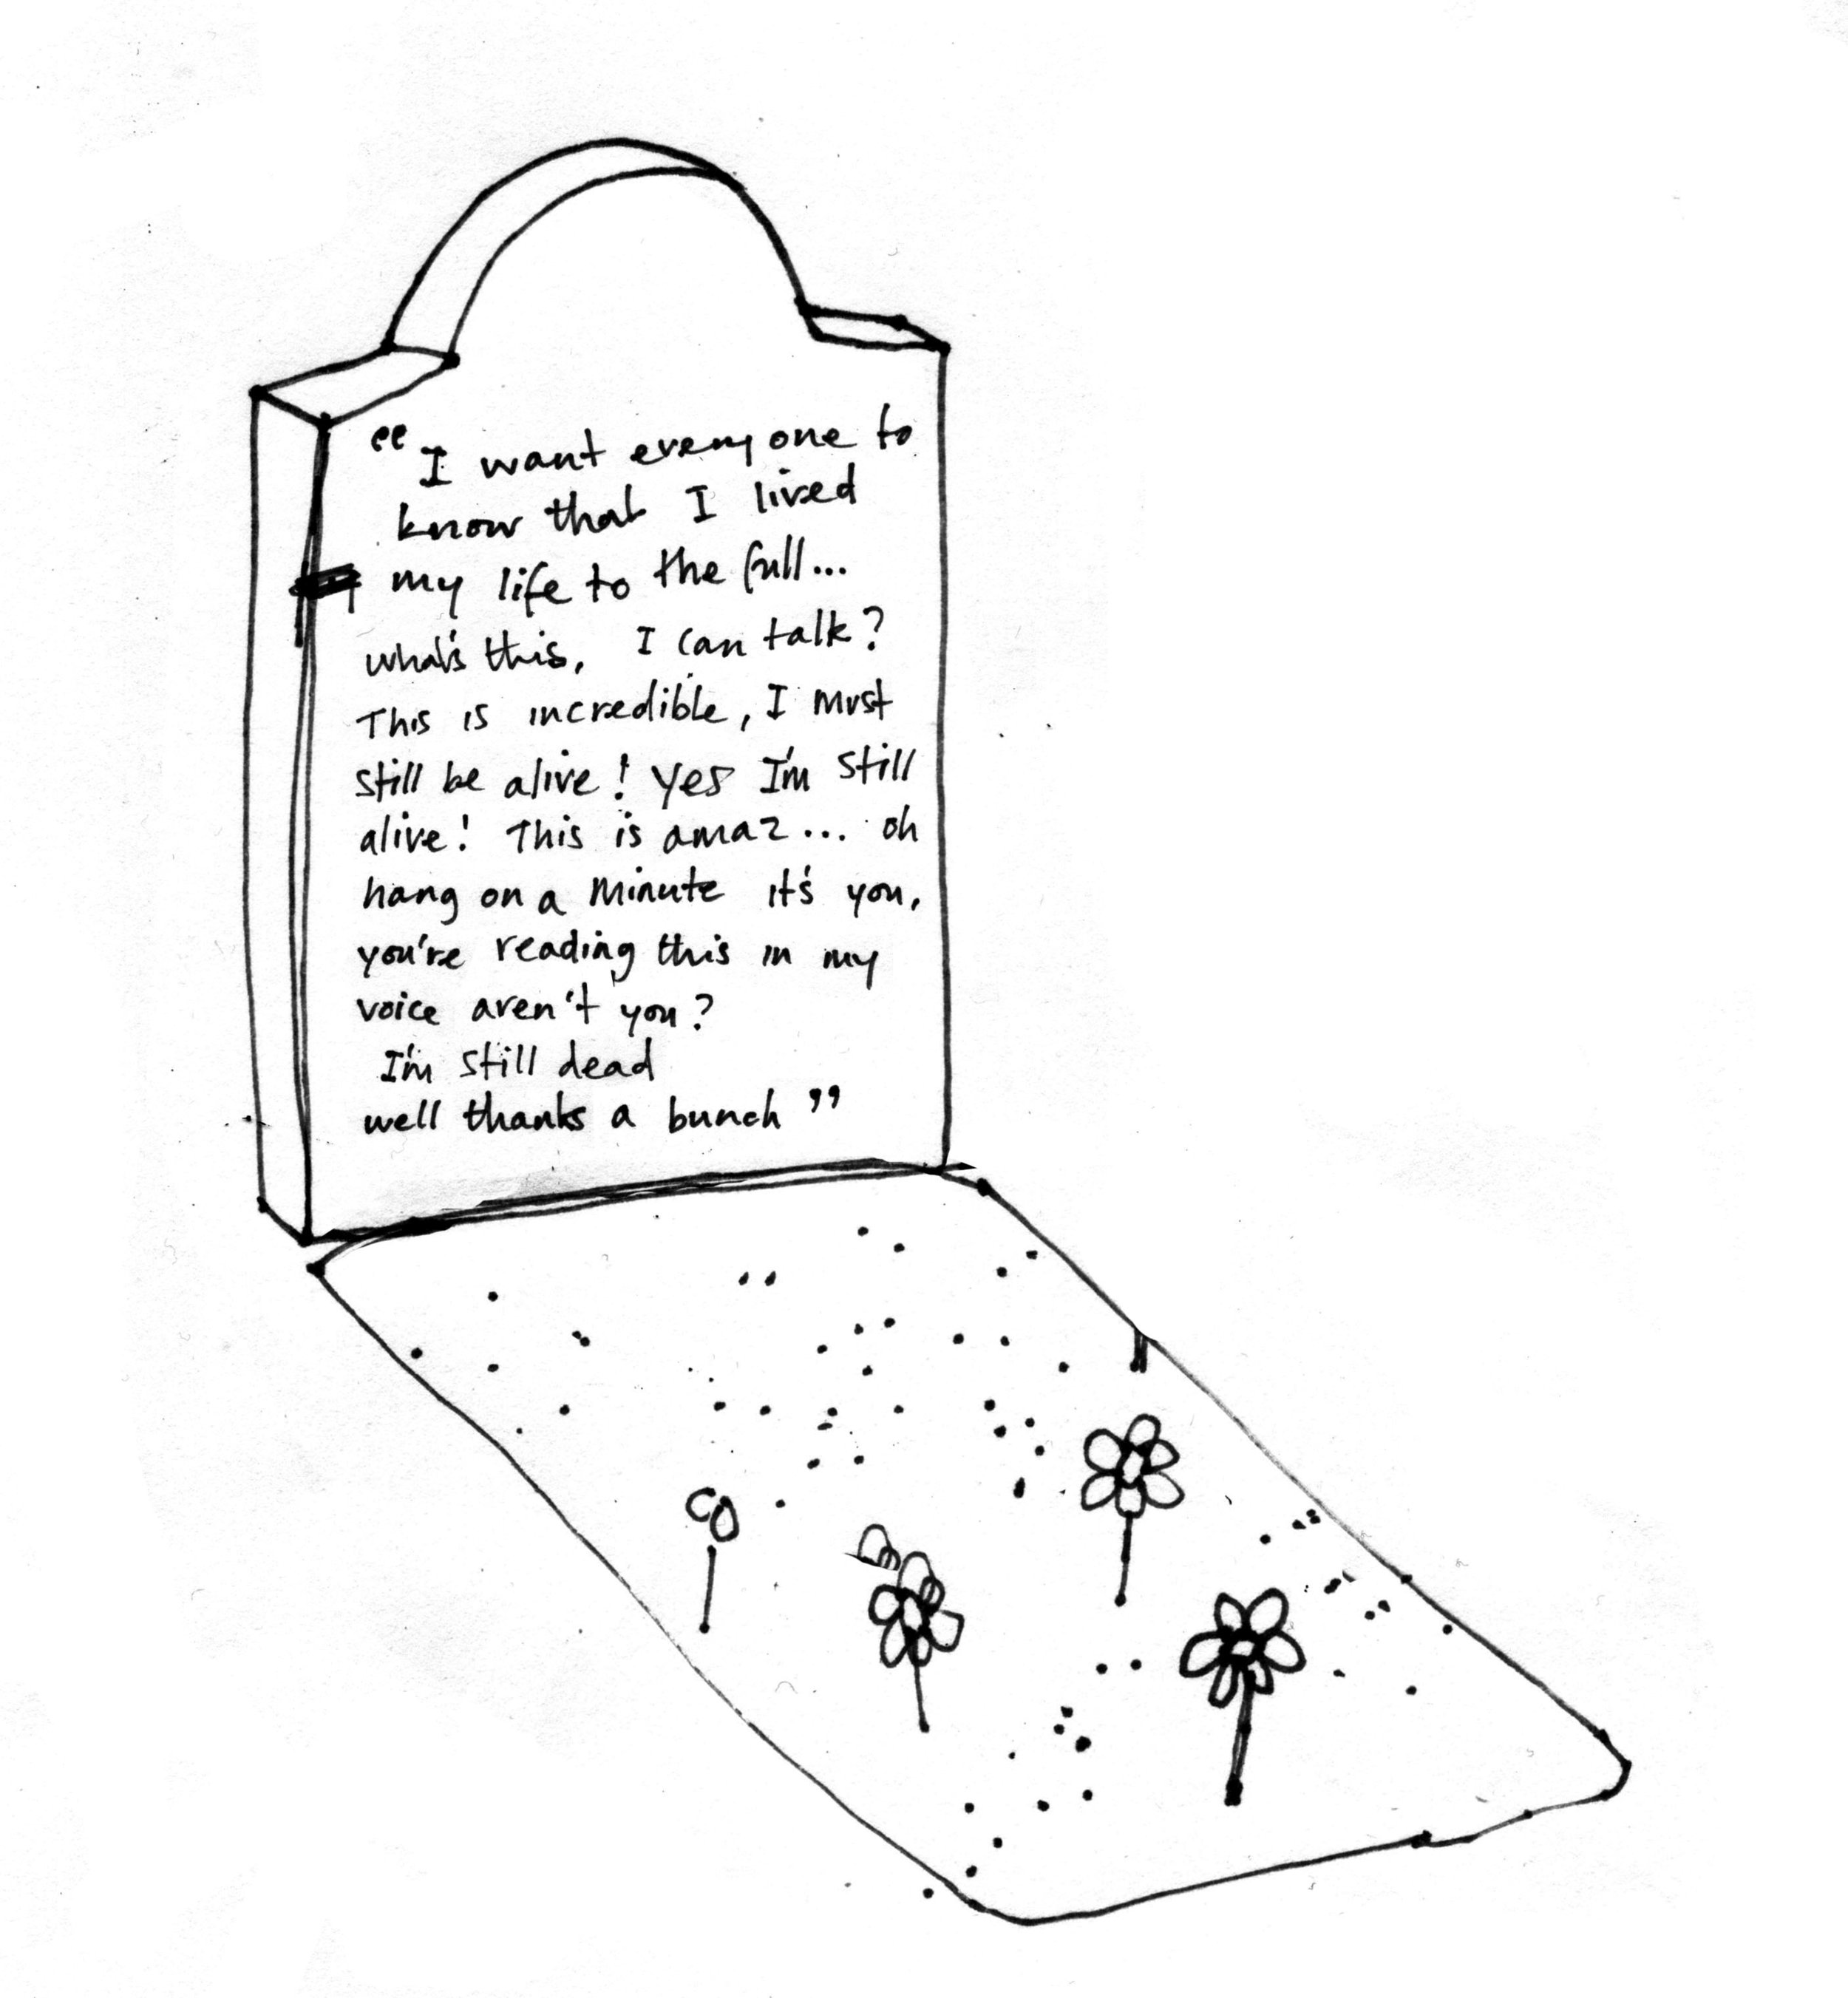 "I want everyone to
know that I lived
my life to the full...
what's this, I can talk?
This is incredible, I must
still be alive! Yes I'm still
alive! This is amaz... oh
hang on a minute it's you,
you're reading this in my
voice aren't you?
I'm still dead
well thanks a bunch"